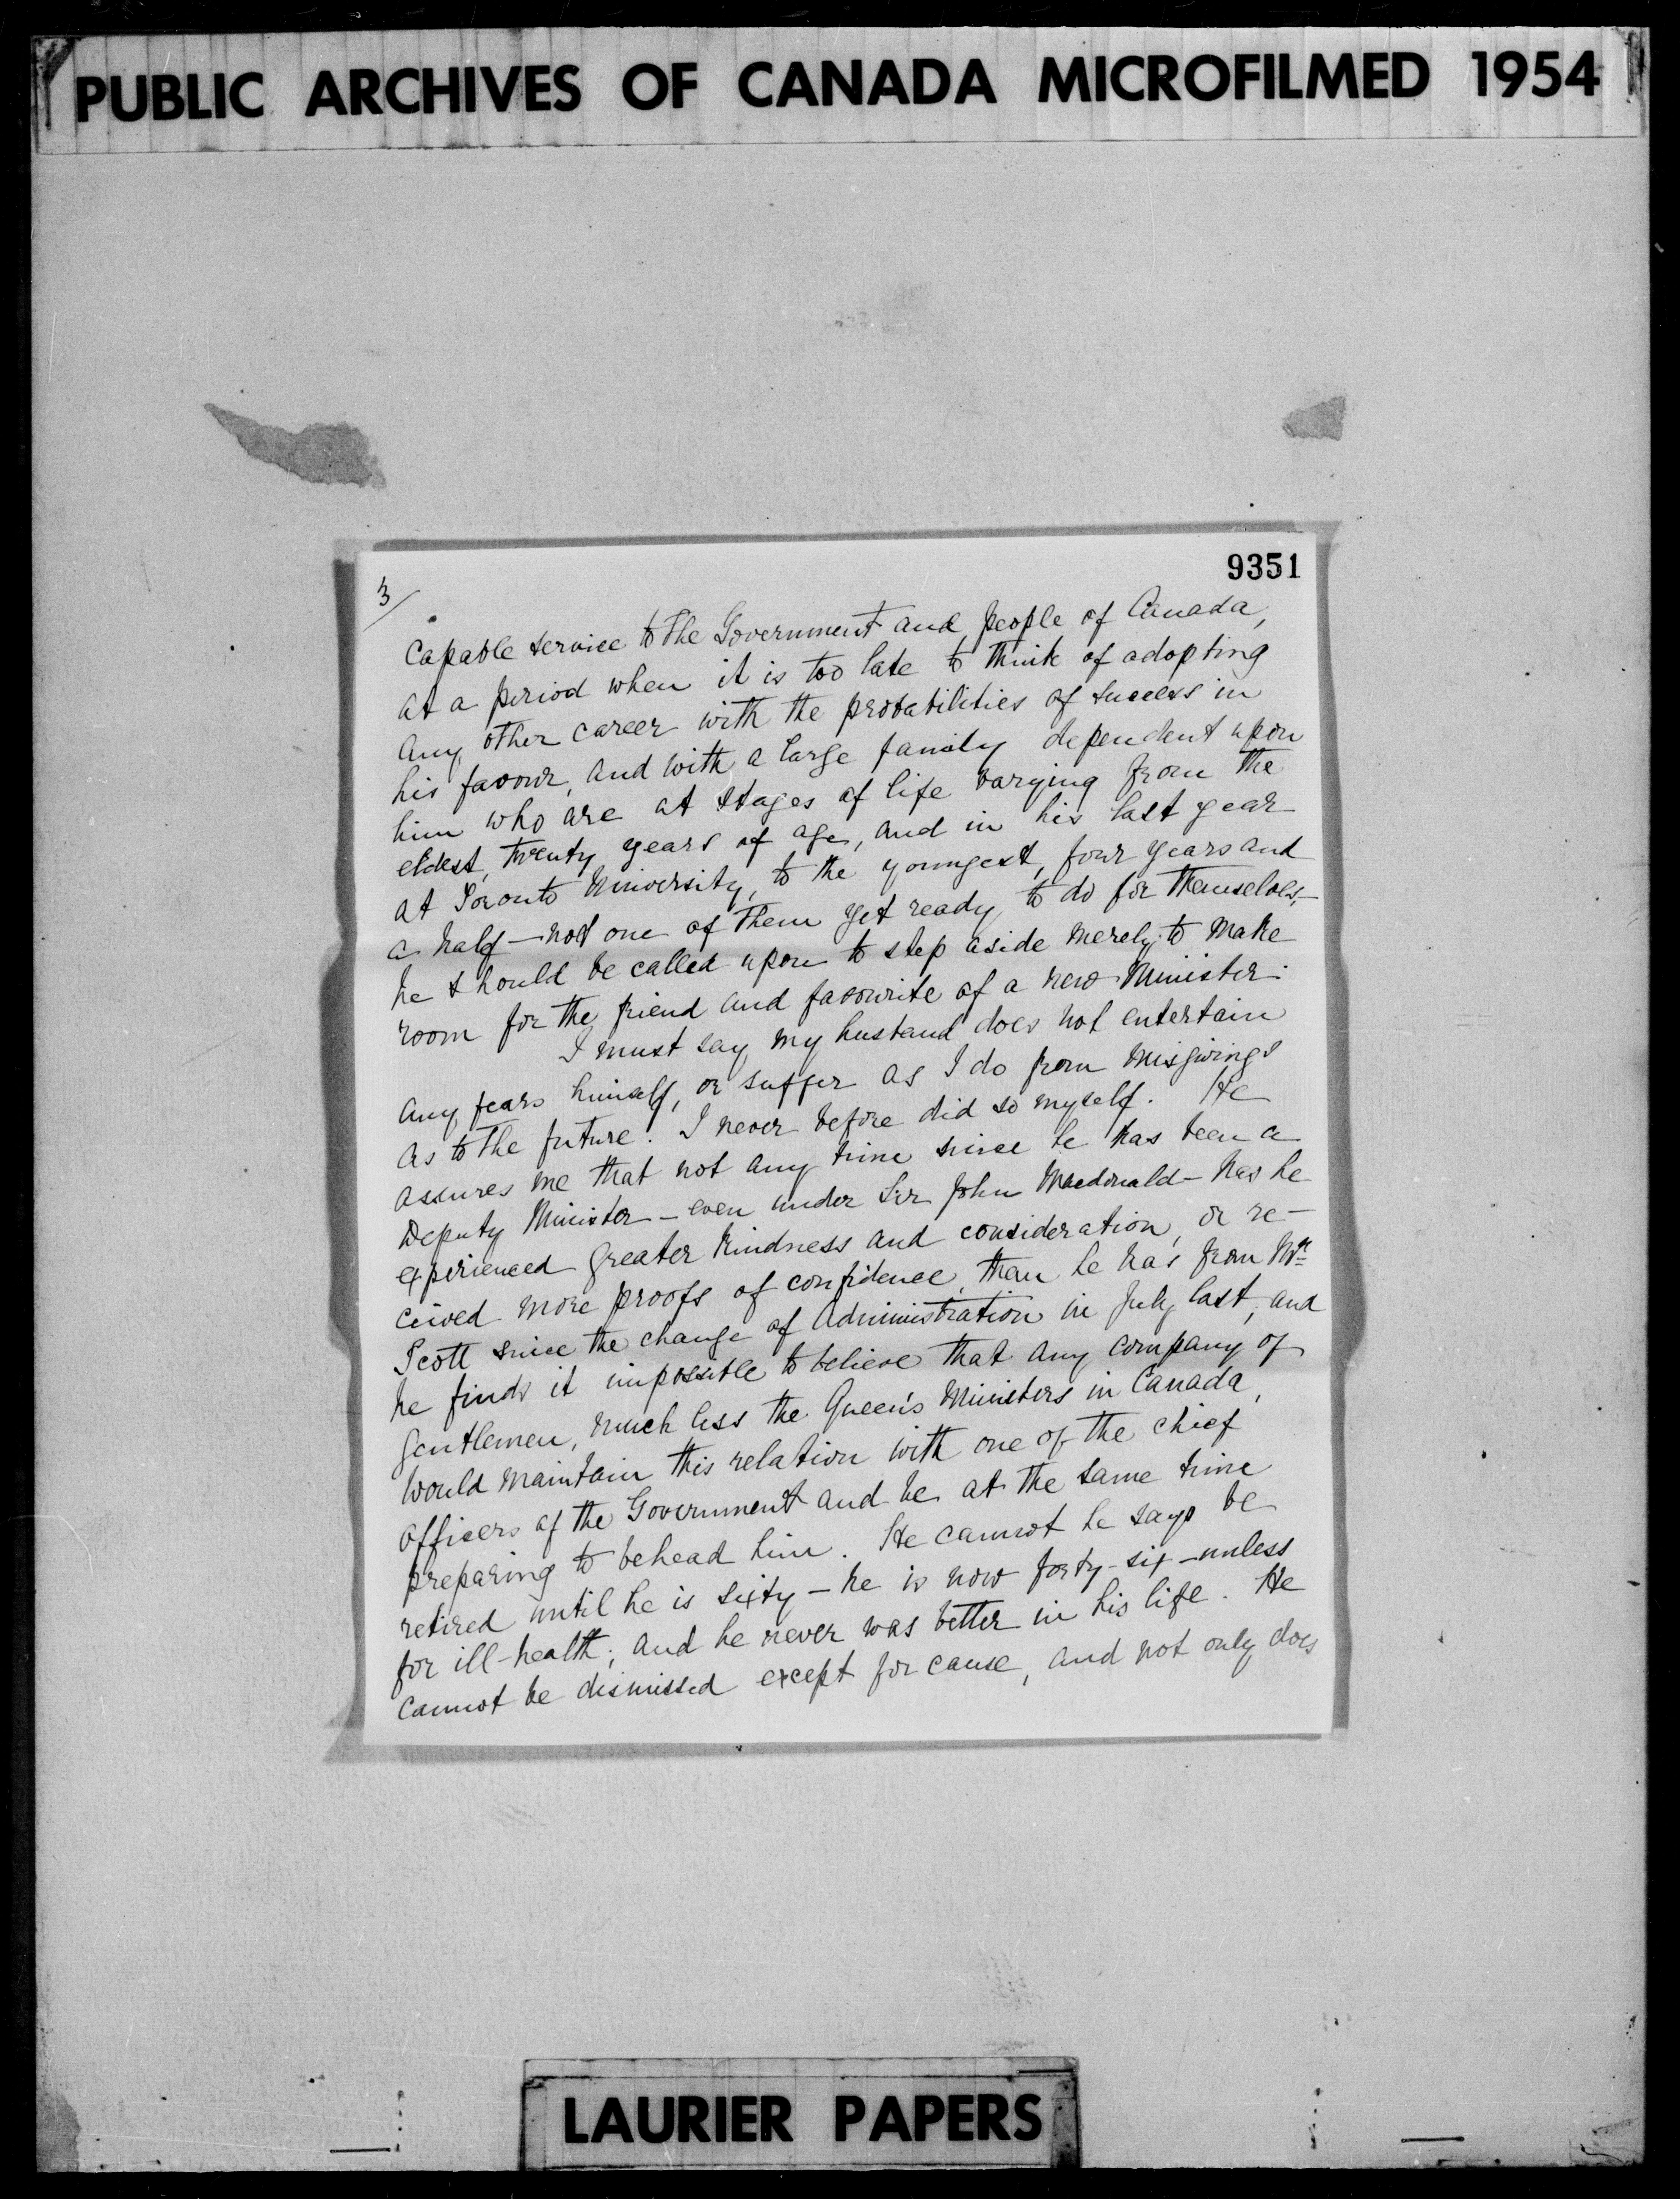 PUBLIC ARCHIVES OF CANADA MICROFILMED 1954
9351
3/
capable service to the Government and people of Canada,
at a period when it is too late to think of adopting
any other career with the probabilities of success in
his favour, and with a large family dependent upon
him who are at stages of life varying from the
eldest, twenty years of age, and in his last year
at Toronto University, to the youngest, four years and
a half — not one of them yet ready to do for themselves, —
he should be called upon to step aside merely to make
room for the friend and favourite of a new Minister.
I must say my husband does not entertain
any fears himself, or suffer as I do from misgivings
as to the future. I never before did so myself. He
assures me that not any time since he has been a
Deputy Minister — even under Sir John Macdonald — has he
experienced greater kindness and consideration, or re-
ceived more proofs of confidence, than he has from Mr.
Scott since the change of Administration in July last, and
he finds it impossible to believe that any company of
gentlemen, much less the Queen's Ministers in Canada,
would maintain this relation with one of the chief
officers of the Government and be at the same time
preparing to behead him. He cannot he says be
retired until he is sixty — he is now forty-six — unless
for ill-health; and he never was better in his life. He
cannot be dismissed except for cause, and not only does
LAURIER PAPERS